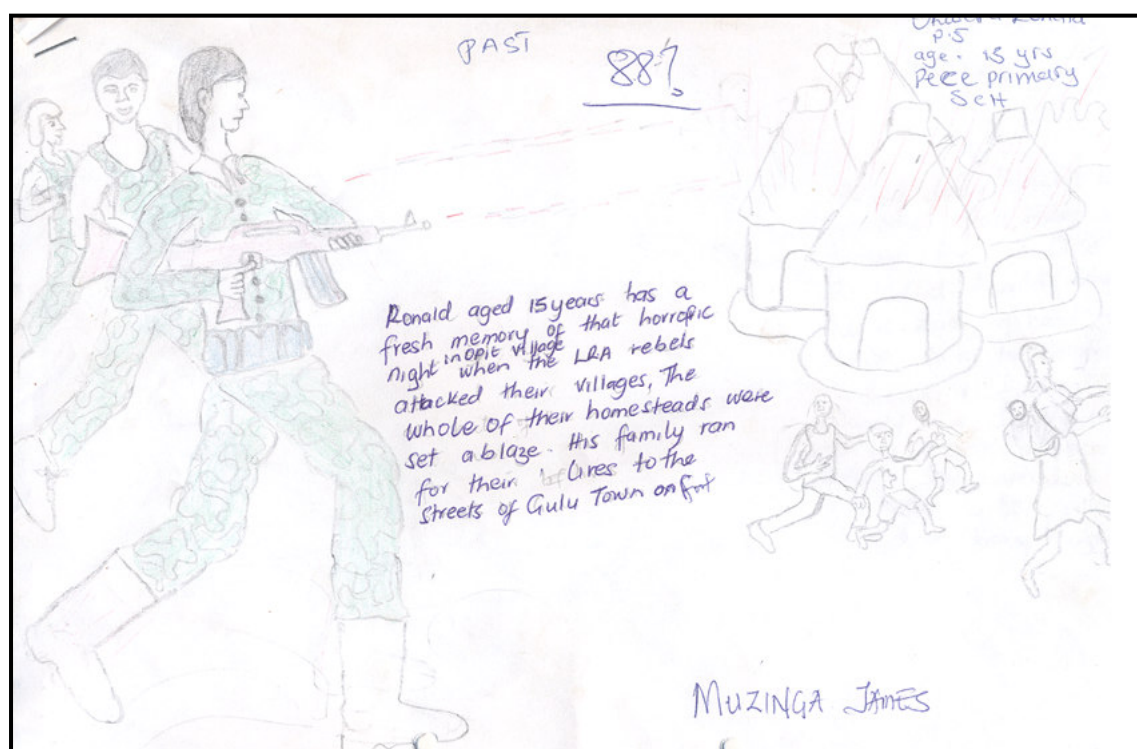 PAST
88%
P.5
age. 15 yrs
Pece primary
SCH
Ronald aged 15 years has a
fresh memory of that horrific
night in opit village when the LRA rebels
attacked their villages. The
whole of their homesteads were
set ablaze. His family ran
for their lives to the
streets of Gulu Town on foot
MUZINGA JAMES